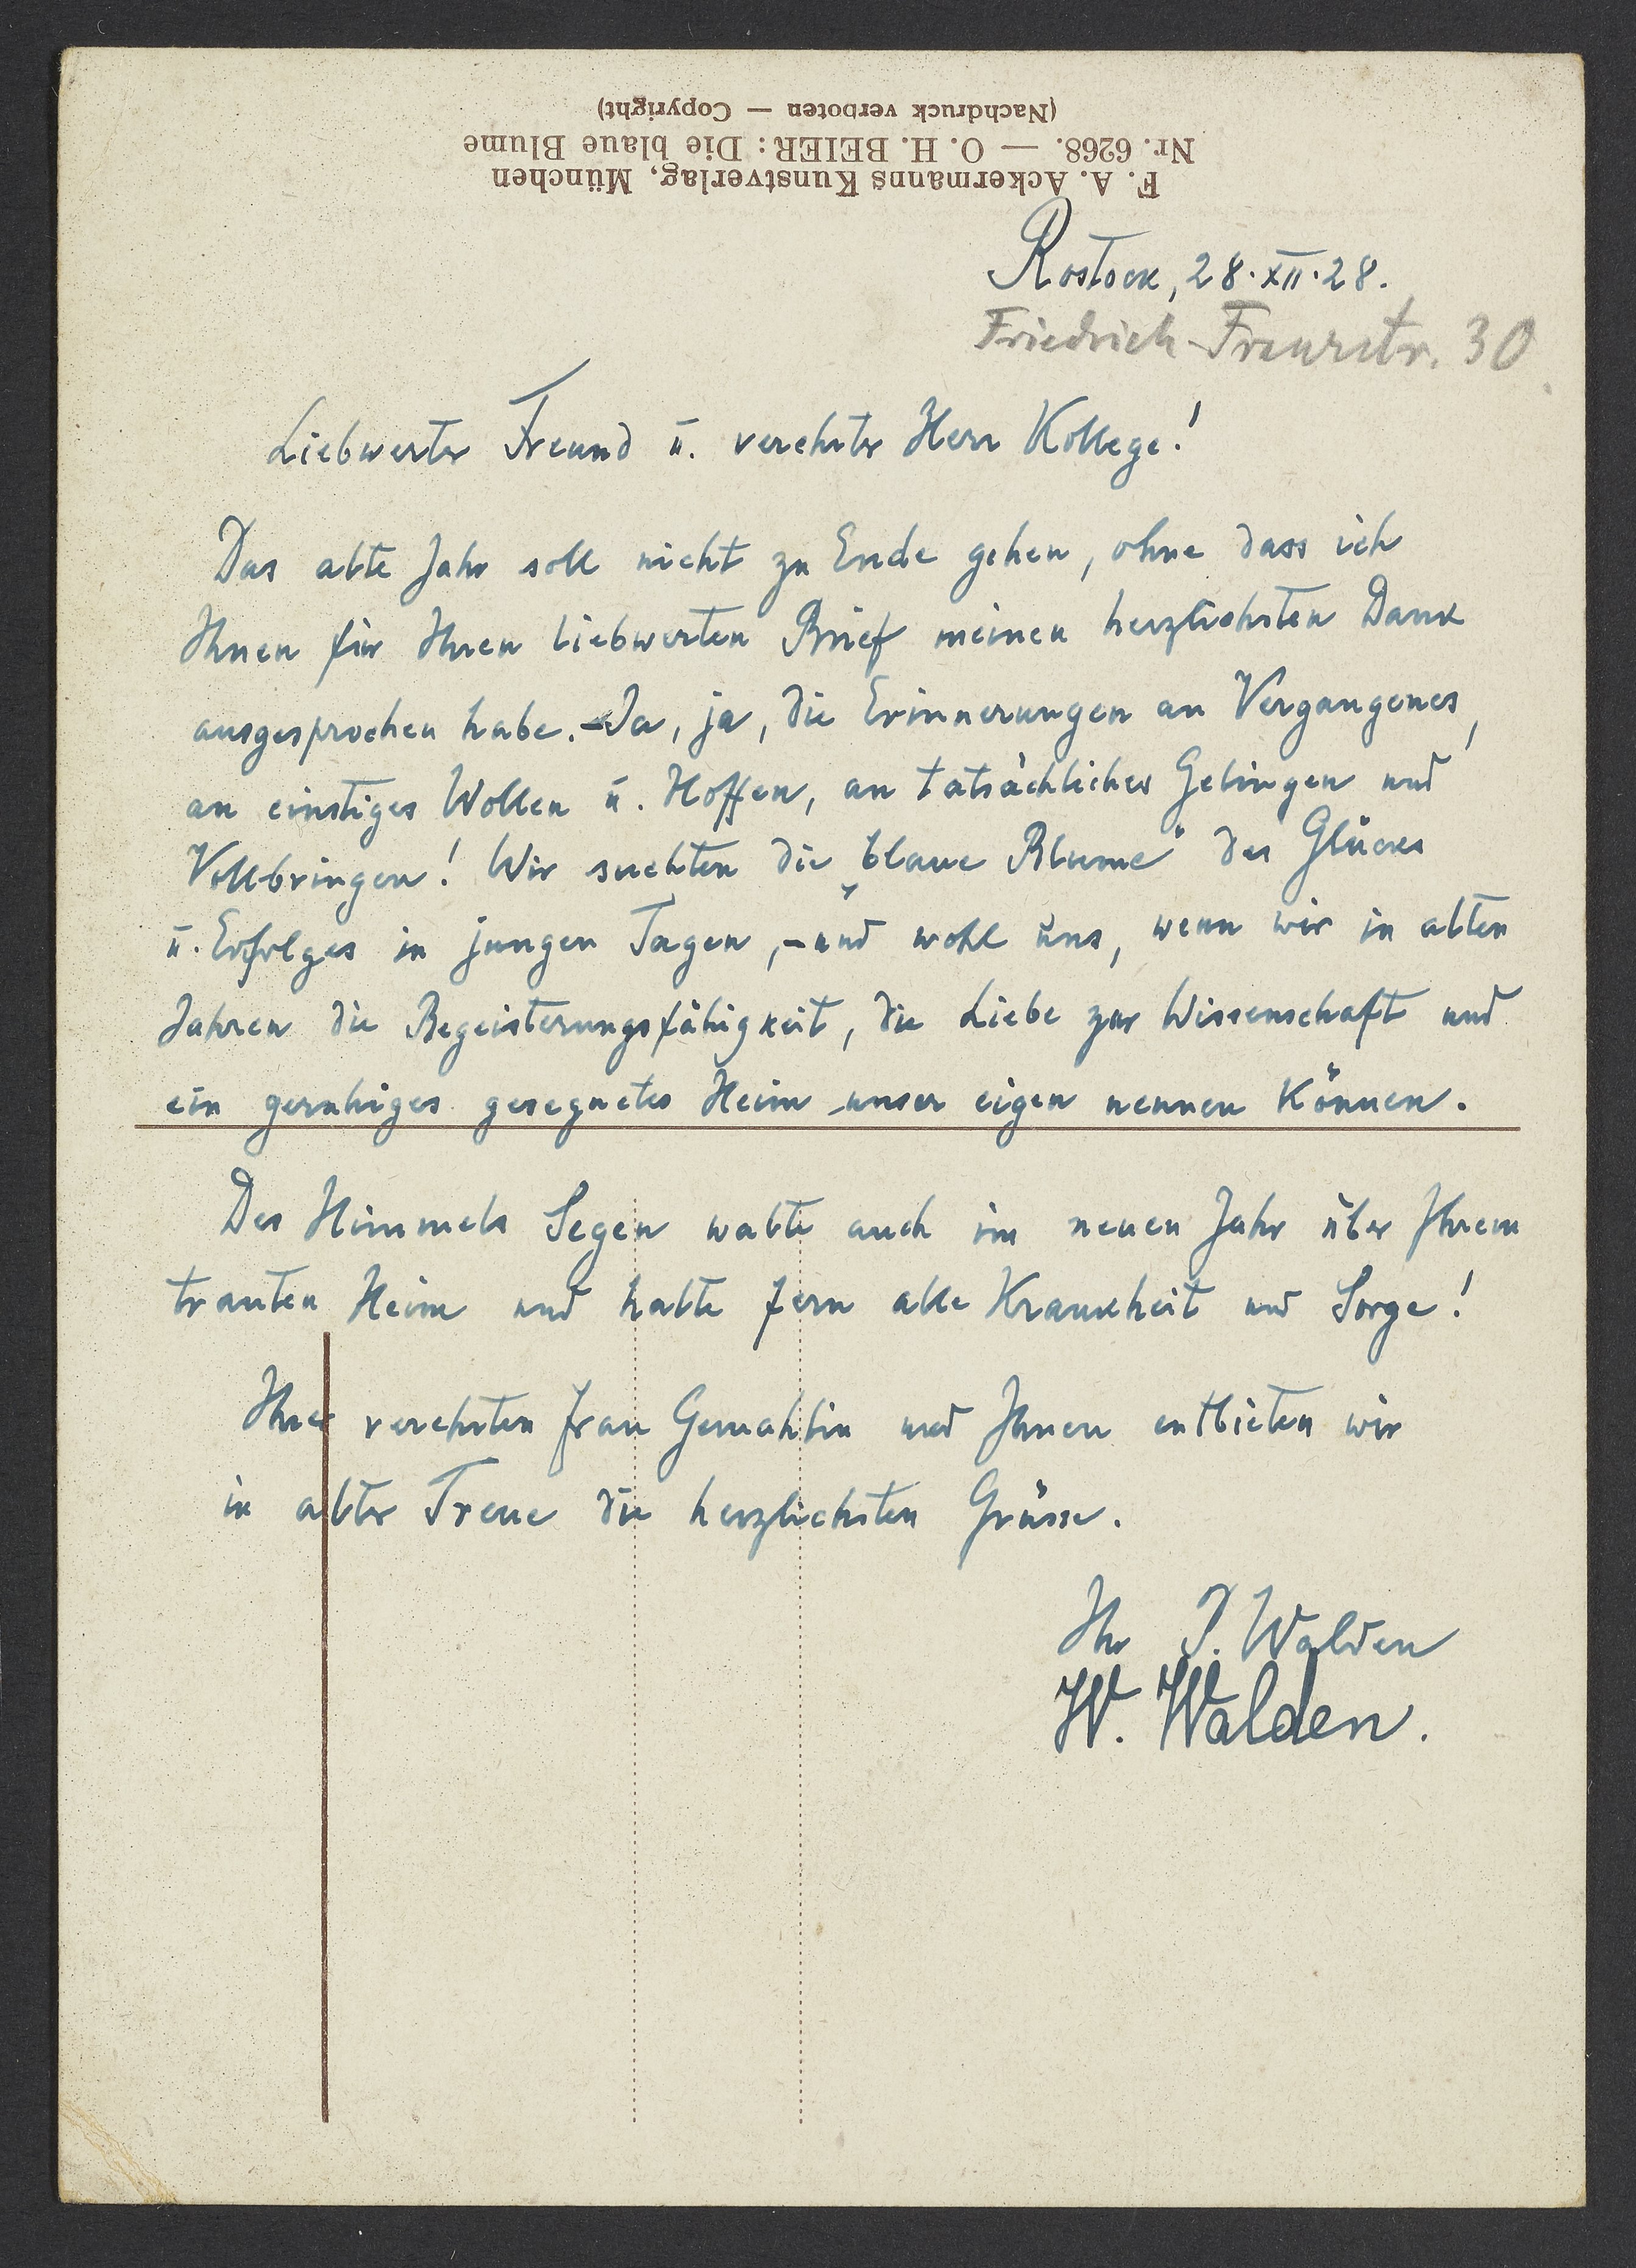 (Nachdruck verboten — Copyright)
Nr. 6268. — O. H. BEIER: Die blaue Blume
F. A. Ackermanns Kunstverlag, München
Rostock, 28.XII.28.
Friedrich-Franzstr. 30
Liebwerter Freund u. verehrter Herr Kollege!
Das alte Jahr soll nicht zu Ende gehen, ohne dass ich
Ihnen für Ihren liebwerten Brief meinen herzlichsten Dank
ausgesprochen habe. – Ja, ja, die Erinnerungen an Vergangenes,
an einstiges Wollen u. Hoffen, an tatsächliches Gelingen und
Vollbringen! Wir suchten die „blaue Blume" des Glückes
u. Erfolges in jungen Tagen, – und wohl uns, wenn wir in alten
Jahren die Begeisterungsfähigkeit, die Liebe zur Wissenschaft und
ein geruhiges gesegnetes Heim unser eigen nennen können.
Des Himmels Segen walte auch im neuen Jahr über Ihrem
trauten Heim und halte fern alle Krankheit und Sorge!
Ihrer verehrten Frau Gemahlin und Ihnen entbieten wir
in alter Treue die herzlichsten Grüsse.
Ihr P. Walden
W. Walden.